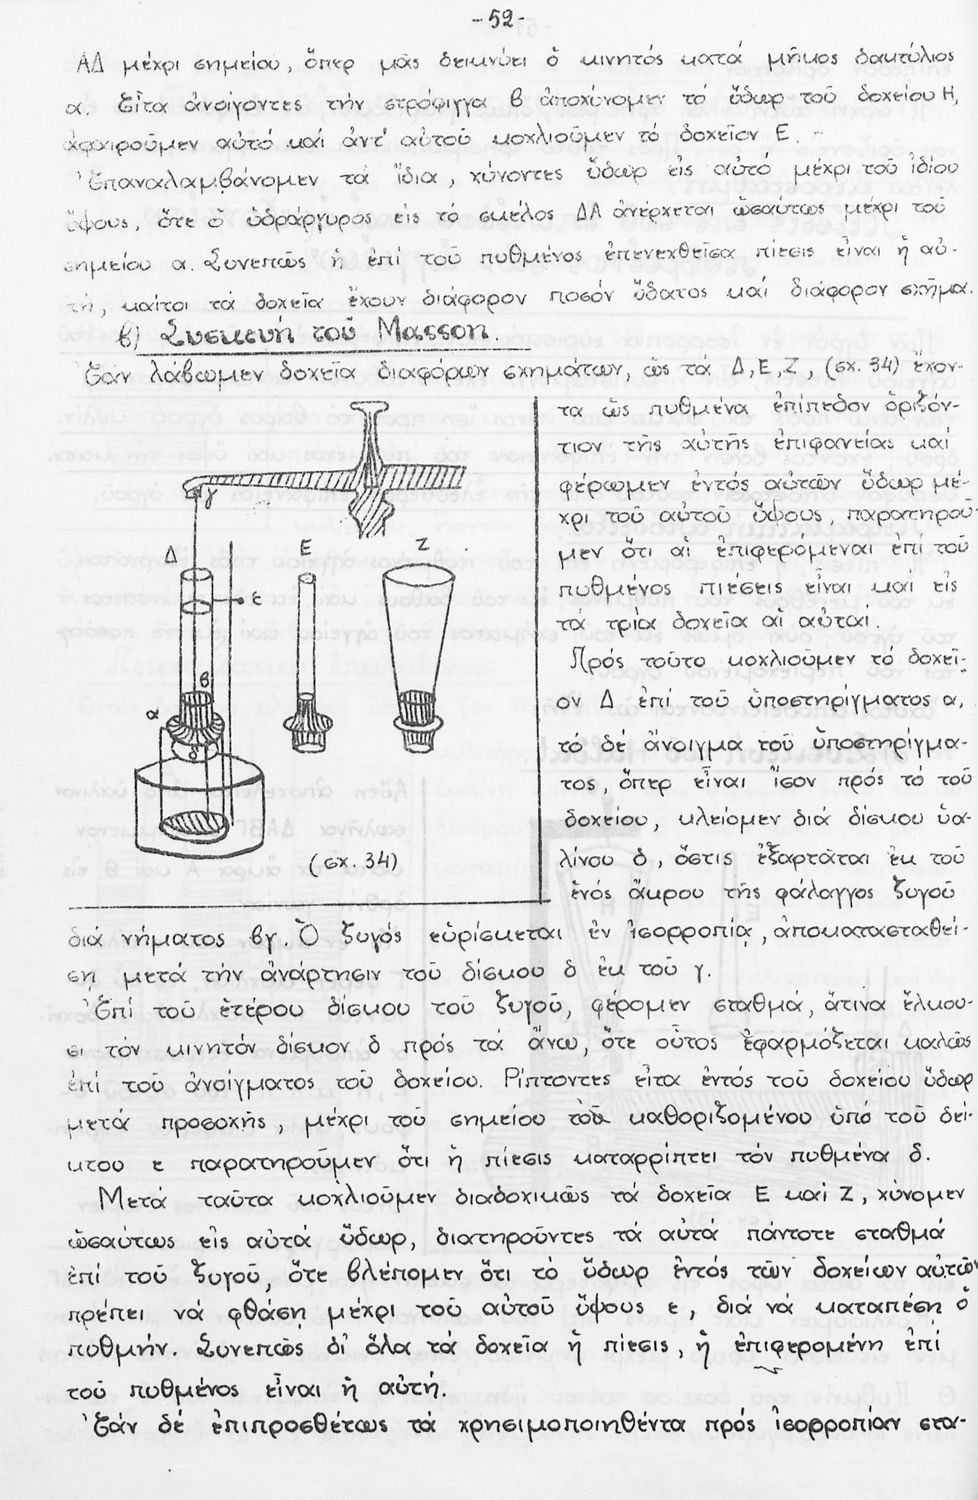 -52-
ΑΔ μέχρι σημείου, ὅπερ μᾶς δεικνύει ὁ κινητός κατά μῆκος δακτύλιος
α. Εἶτα ἀνοίγοντες τήν στρόφιγγα β ἀποχύνομεν τό ὕδωρ τοῦ δοχείου Η,
ἀφαιροῦμεν αὐτό καί ἀντ' αὐτοῦ κοχλιοῦμεν τό δοχεῖον Ε.
Ἐπαναλαμβάνομεν τά ἴδια, χύνοντες ὕδωρ εἰς αὐτό μέχρι τοῦ ἰδίου
ὕψους, ὅτε ὁ ὑδράργυρος εἰς τό σκέλος ΔΑ ἀνέρχεται ὡσαύτως μέχρι τοῦ
σημείου α. Συνεπῶς ἡ ἐπί τοῦ πυθμένος ἐπενεχθεῖσα πίεσις εἶναι ἡ αὐ-
τή, καίτοι τά δοχεῖα ἔχουν διάφορον ποσόν ὕδατος καί διάφορον σχῆμα.
β) Συσκευή τοῦ Masson.
Ἐάν λάβωμεν δοχεῖα διαφόρων σχημάτων, ὡς τά Δ, Ε, Ζ, (σχ. 34) ἔχον-
τα ὡς πυθμένα ἐπίπεδον ὁριζόν-
τιον τῆς αὐτῆς ἐπιφανείας καί
φέρωμεν ἐντός αὐτῶν ὕδωρ μέ-
χρι τοῦ αὐτοῦ ὕψους, παρατηροῦ-
μεν ὅτι αἱ ἐπιφερόμεναι ἐπί τοῦ
πυθμένος πιέσεις εἶναι καί εἰς
τά τρία δοχεῖα αἱ αὐταί.
Πρός τοῦτο κοχλιοῦμεν τό δοχεῖ-
ον Δ ἐπί τοῦ ὑποστηρίγματος α,
τό δέ ἄνοιγμα τοῦ ὑποστηρίγμα-
τος, ὅπερ εἶναι ἴσον πρός τό τοῦ
δοχείου, κλείομεν διά δίσκου ὑα-
λίνου δ, ὅστις ἐξαρτᾶται ἐκ τοῦ
ἑνός ἄκρου τῆς φάλαγγος ζυγοῦ
γ
Δ Ε Ζ
ε
β
α
δ
(σχ. 34)
διά νήματος βγ. Ὁ ζυγός εὑρίσκεται ἐν ἰσορροπίᾳ, ἀποκατασταθεί-
ση μετά τήν ἀνάρτησιν τοῦ δίσκου δ ἐκ τοῦ γ.
Ἐπί τοῦ ἑτέρου δίσκου τοῦ ζυγοῦ, φέρομεν σταθμά, ἅτινα ἕλκου-
σι τόν κινητόν δίσκον δ πρός τά ἄνω, ὅτε οὗτος ἐφαρμόζεται καλῶς
ἐπί τοῦ ἀνοίγματος τοῦ δοχείου. Ρίπτοντες εἶτα ἐντός τοῦ δοχείου ὕδωρ
μετά προσοχῆς, μέχρι τοῦ σημείου τοῦ καθοριζομένου ὑπό τοῦ δεί-
κτου ε παρατηροῦμεν ὅτι ἡ πίεσις καταρρίπτει τόν πυθμένα δ.
Μετά ταῦτα κοχλιοῦμεν διαδοχικῶς τά δοχεῖα Ε καί Ζ, χύνομεν
ὡσαύτως εἰς αὐτά ὕδωρ, διατηροῦντες τά αὐτά πάντοτε σταθμά
ἐπί τοῦ ζυγοῦ, ὅτε βλέπομεν ὅτι τό ὕδωρ ἐντός τῶν δοχείων αὐτῶν
πρέπει νά φθάσῃ μέχρι τοῦ αὐτοῦ ὕψους ε, διά νά καταπέσῃ ὁ
πυθμήν. Συνεπῶς δι' ὅλα τά δοχεῖα ἡ πίεσις, ἡ ἐπιφερομένη ἐπί
τοῦ πυθμένος εἶναι ἡ αὐτή.
Ἐάν δέ ἐπιπροσθέτως τά χρησιμοποιηθέντα πρός ἰσορροπίαν στα-